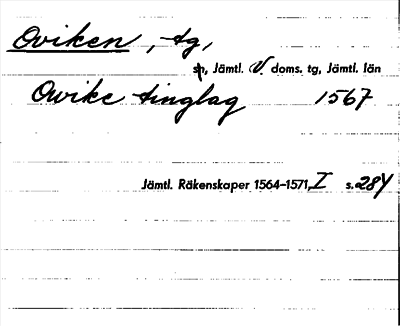 Oviken, tg,
sn, Jämtl. V. doms. tg, Jämtl. län
Owike tinglag 1567
Jämtl. Räkenskaper 1564–1571, I s. 284